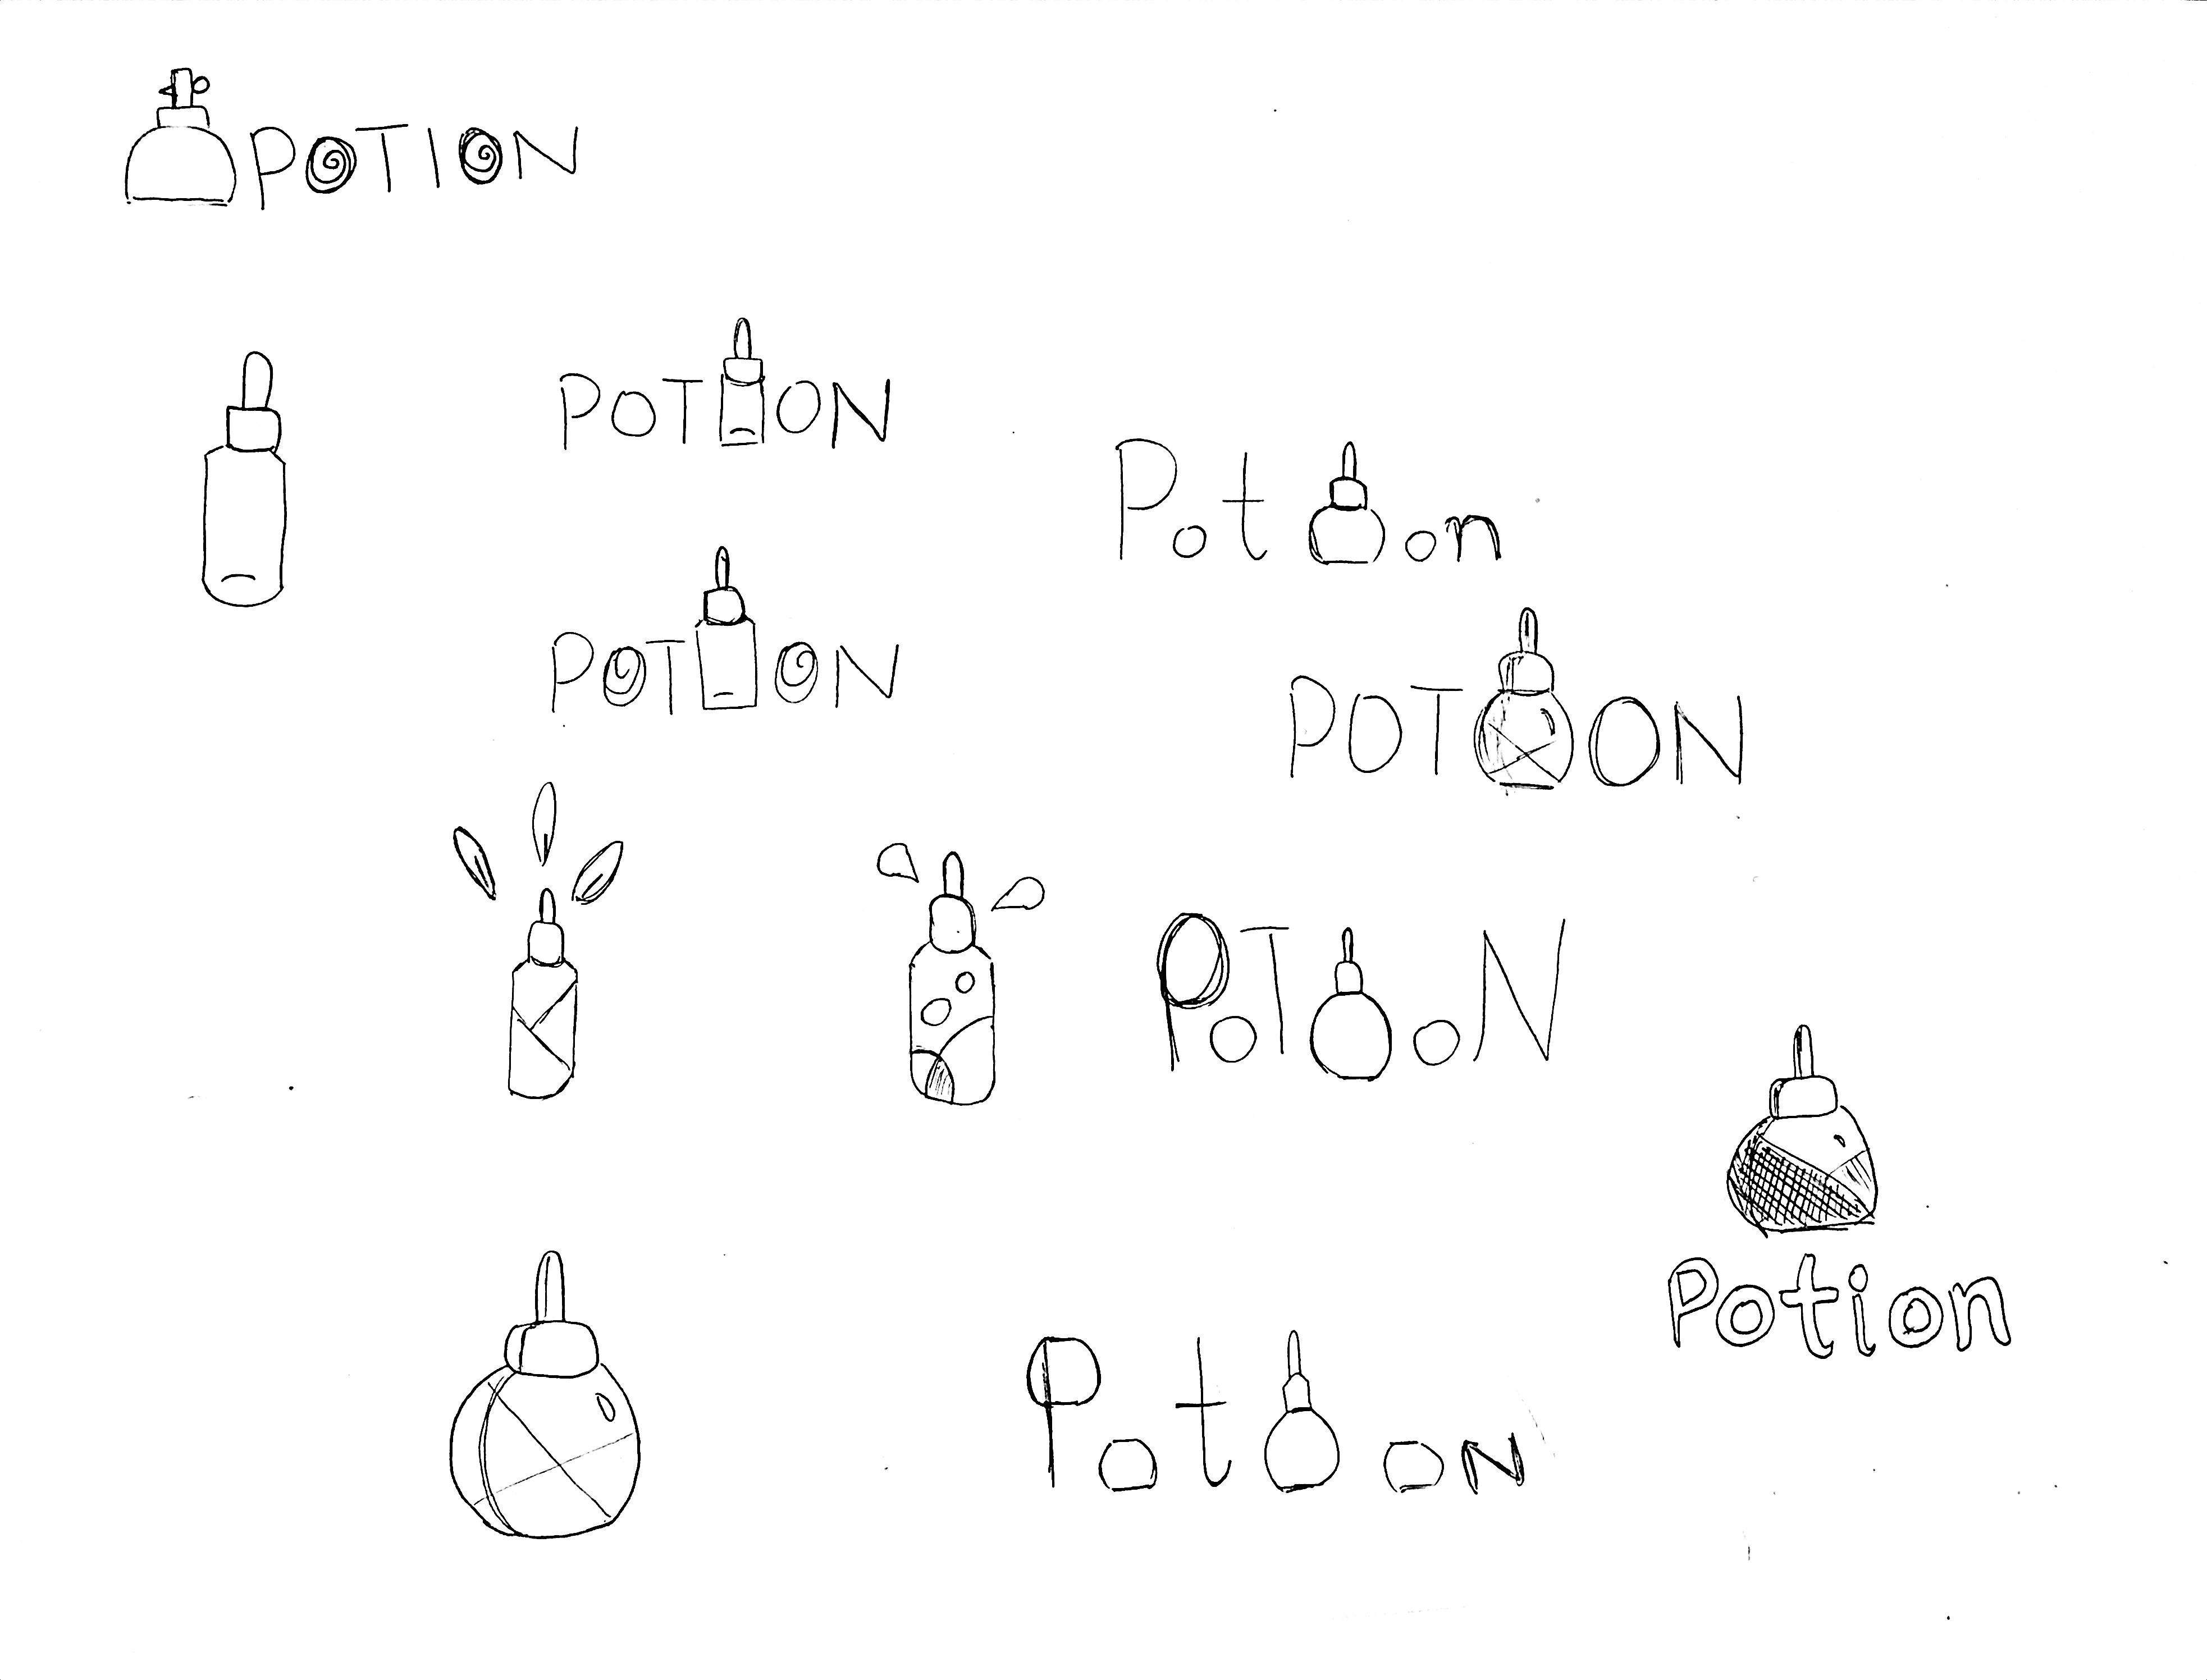 POTION
POTION
Potion
POTION
POTION
PoTIoN
Potion
PotioN